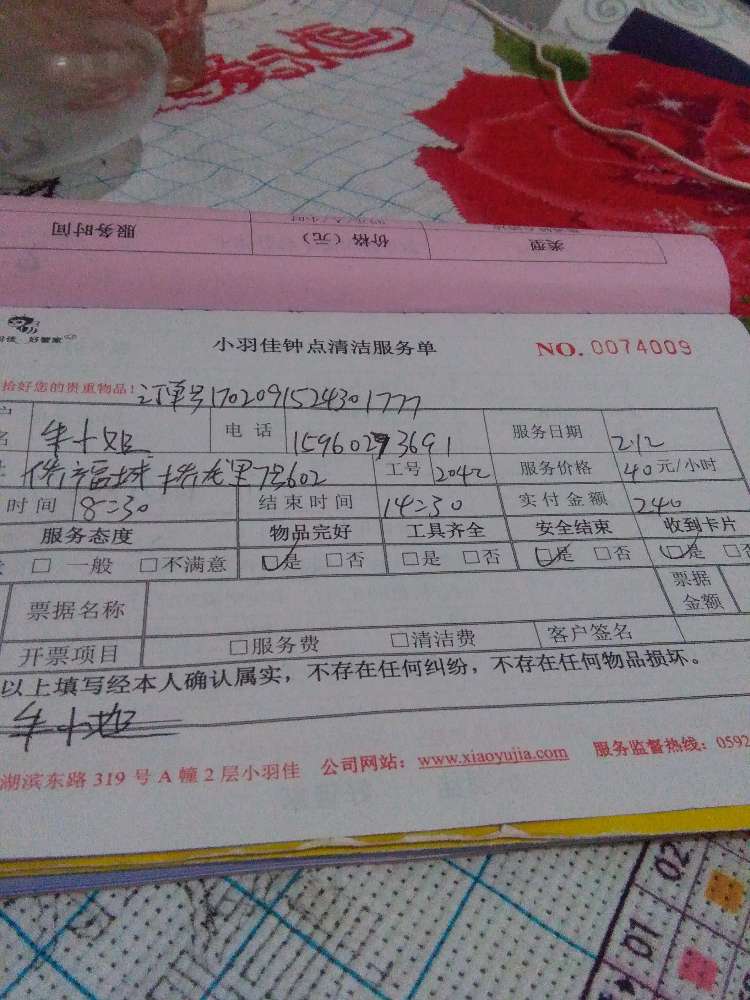 服务时间 价格（元） 类型
好管家
小羽佳钟点清洁服务单 NO. 0074009
拾好您的贵重物品！订单号1702091524301777
名 朱小姐 电话 15960293691 服务日期 2.12
7号602 工号 2042 服务价格 40元/小时
时间 8:30 结束时间 14:30 实付金额 240
服务态度 物品完好 工具齐全 安全结束 收到卡片
□ 一般 □不满意 □是 □否 □是 □否 □是 □否 □是 □否
票据名称 票据金额
开票项目 □服务费 □清洁费 客户签名
以上填写经本人确认属实，不存在任何纠纷，不存在任何物品损坏。
朱小姐
湖滨东路319号A幢2层小羽佳 公司网站：www.xiaoyujia.com 服务监督热线：0592
01 02